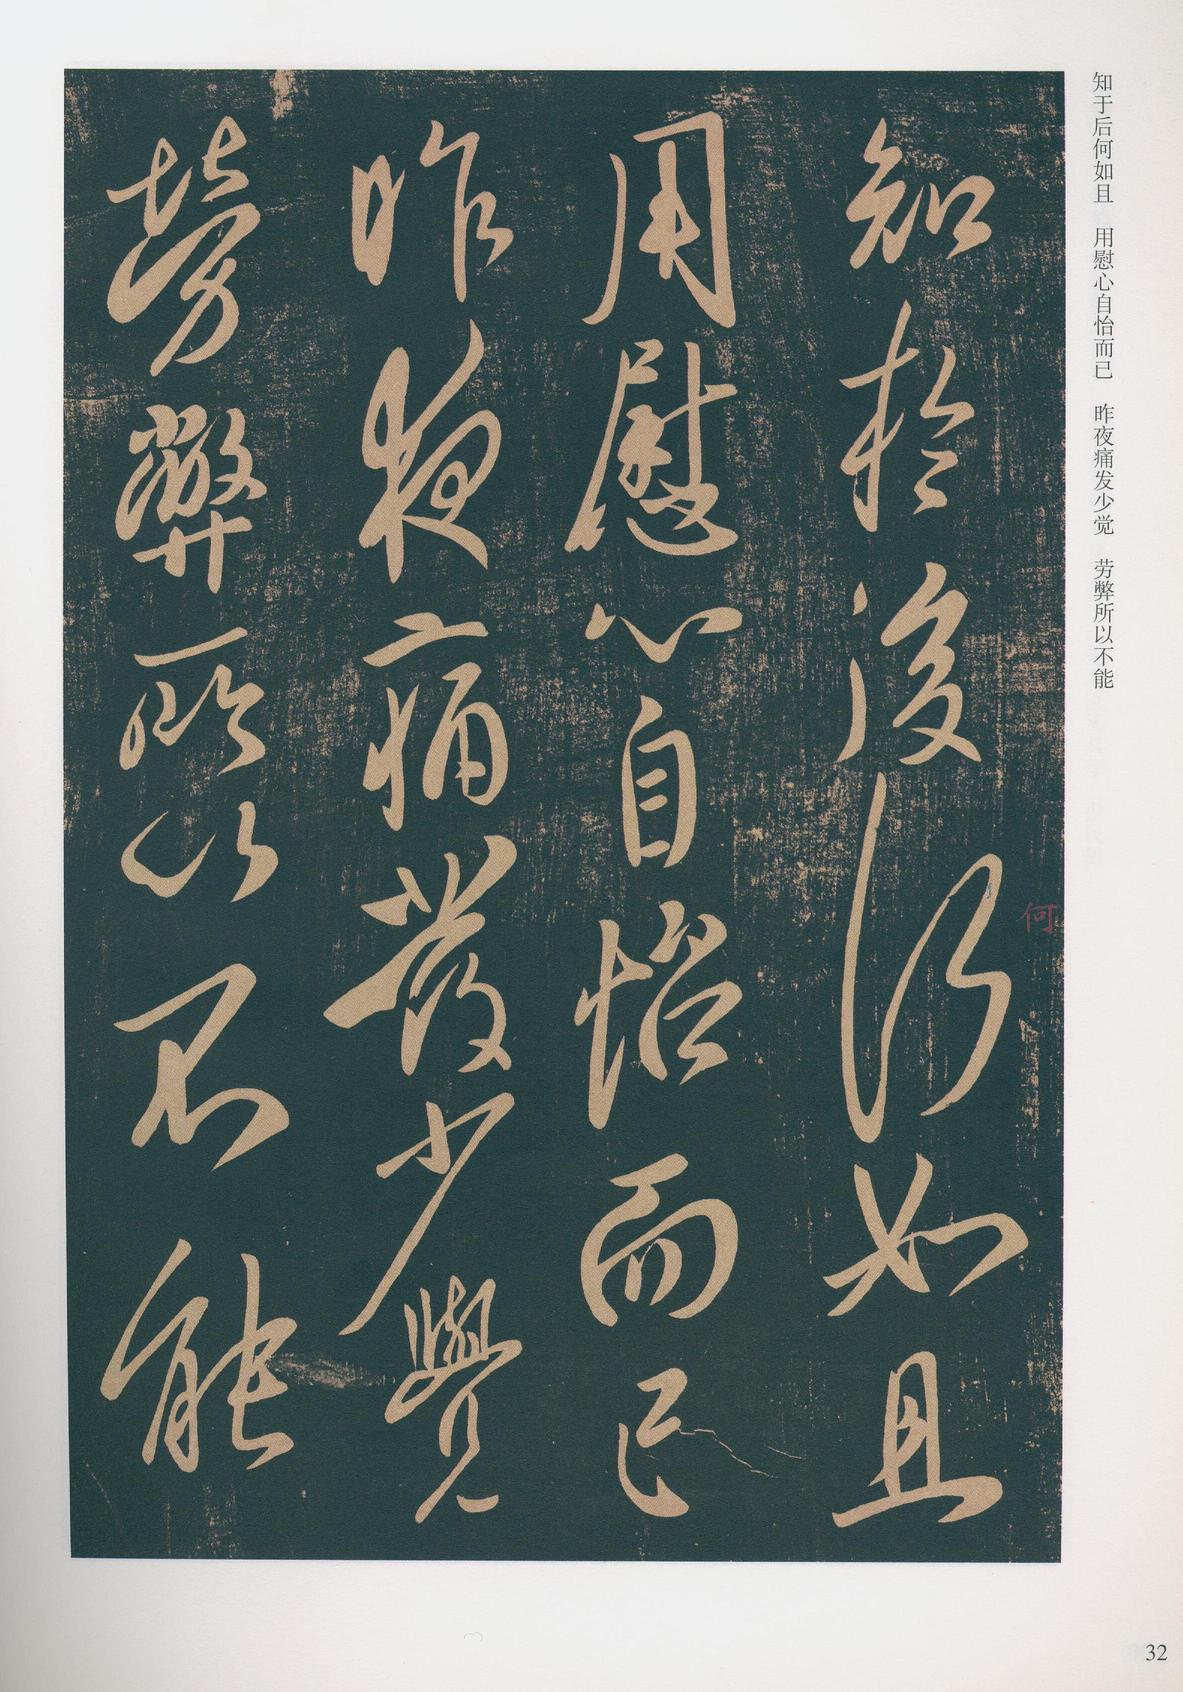 知于后何如且　用慰心自怡而已　昨夜痛发少觉　劳弊所以不能
知於後何如且
何
用慰心自怡而已
昨夜痛發少覺
勞弊所以不能
32